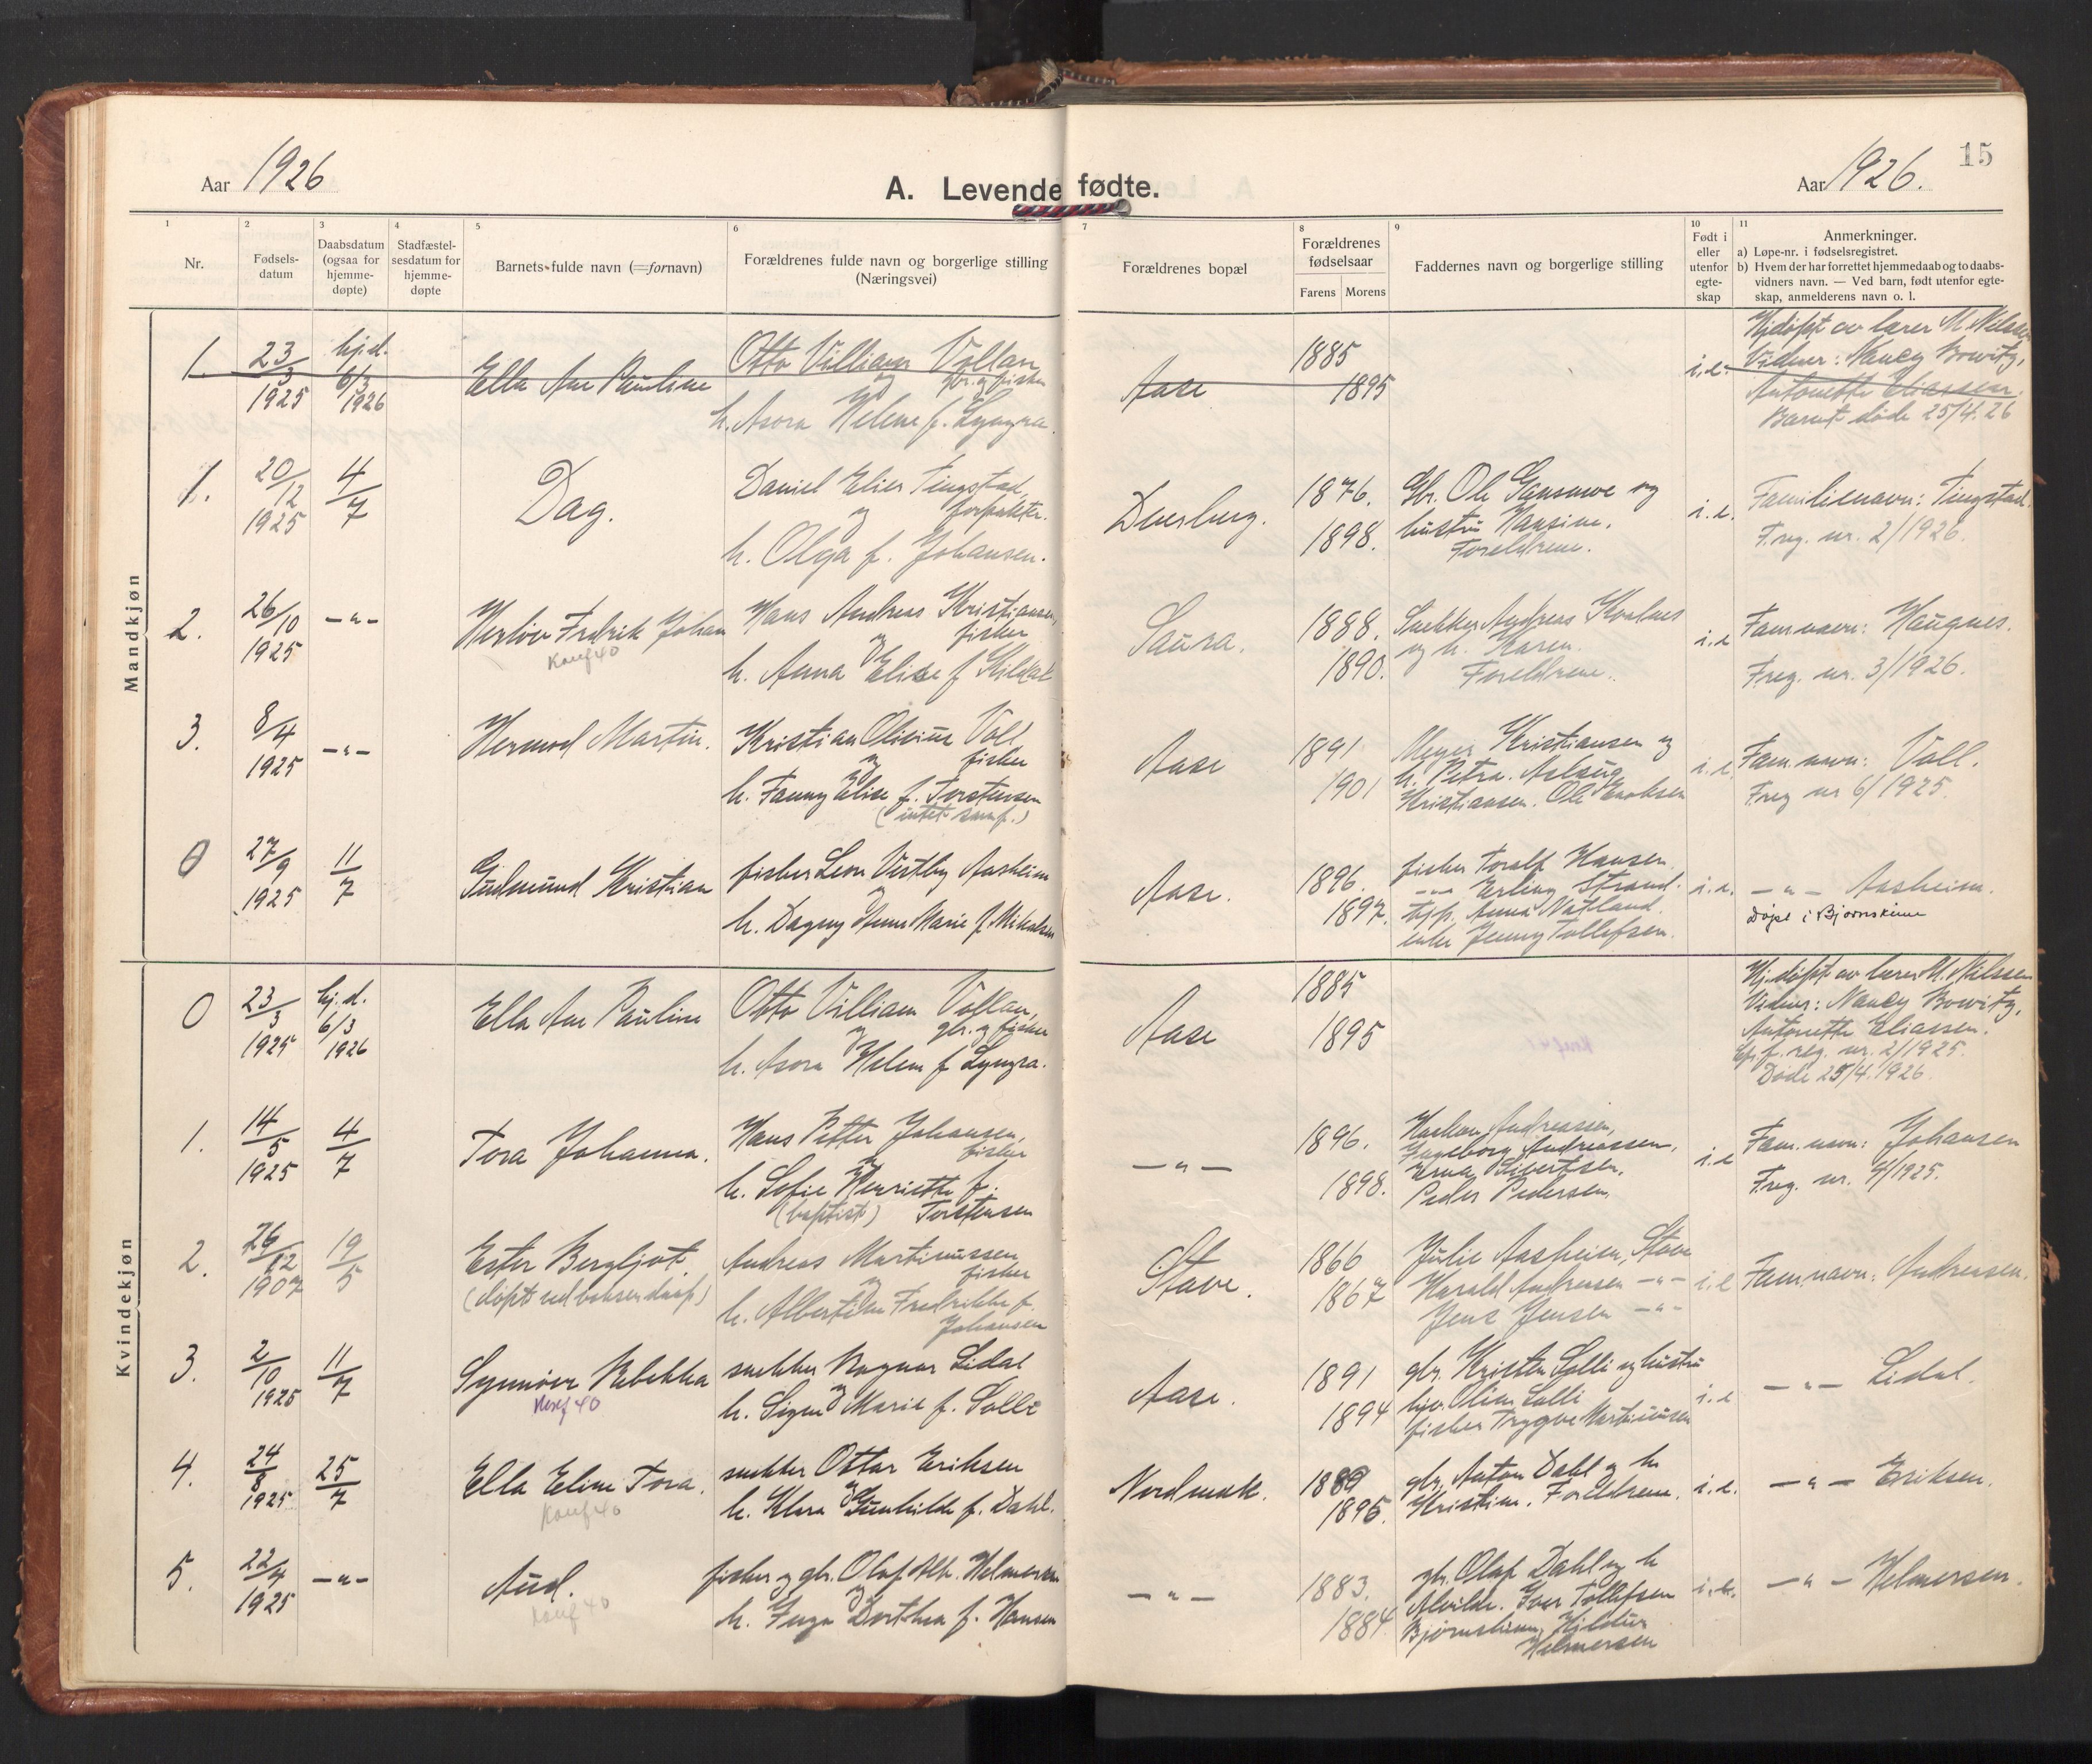 Aar 1926
A. Levende fødte.
Aar 1926.
15
1 2 3 4 5 6 7 8 9 10 11
Nr.
Fødsels-
datum
Daabsdatum
(ogsaa for
hjemme-
døpte)
Stadfæstel-
sesdatum for
hjemme-
døpte
Barnets fulde navn (=fornavn)
Forældrenes fulde navn og borgerlige stilling
(Næringsvei)
Forældrenes bopæl
Forældrenes
fødselsaar
Farens Morens
Faddernes navn og borgerlige stilling
Født i
eller
utenfor
egte-
skap
Anmerkninger.
a) Løpe-nr. i fødselsregistret.
b) Hvem der har forrettet hjemmedaab og to daabs-
vidners navn. — Ved barn, født utenfor egte-
skap, anmelderens navn o. l.
Mandkjøn
1. 23/3 1925
hj.d. 6/3 1926
Ella Ane Pauline
Otto Villiam Vollan
og gbr. og fisker
h. Asora Helene f. Lyngra.
Aase
1885
1895
i.e.
Hjdøpt av lærer M. Nilssen
Vidner: Nancy Bowitz,
Antonette Eliassen.
Barnet døde 25/4.26
1. 20/12 1925
4/7
Dag.
Daniel Elier Tingstad,
og forpakter.
h. Olga f. Johansen.
Dverberg.
1876.
1898.
Gbr. Ole og
hustru Hansine.
Foreldrene.
i.e.
Familienavn: Tingstad.
F.reg. nr. 2/1926.
2. 26/10 1925
-"-
Herlov Fredrik Johan
Konf 40
Hans Andreas Kristiansen,
og fisker
h. Anna Elise f.
Saura.
1888.
1890.
Snekker Andreas
og h. Karen.
Foreldrene.
i.e
Fam.navn: Haugnes.
F.reg. nr. 3/1926.
3. 8/4 1925
-"-
Hermod Martin.
Kristian Olivius Voll
og fisker
h. Fanny Elise f. Torstensen
(intet samf.)
Aase
1891
1901
Meyer Kristiansen og
h. Petra. Aslaug
Kristiansen. Ole Enoksen
i.e.
Fam.navn: Voll.
F.reg nr 6/1925.
0 27/9 1925
11/7
Gudmund Kristian
fisker Leon Vestby Aasheim
og
h. Dagny Anne Marie f. Mikalsen
Aase.
1896.
1897.
fisker Toralf Hansen
-"- Erling Strand.
tjp. Anna Natland.
enke Jenny Tollefsen.
i.e.
-"- Aasheim.
døpt i Bjørnskinn
Kvindekjøn
0 23/3 1925
hj.d. 6/3 1926
Ella Ane Pauline
Otto Villiam Vollan,
og gbr. og fisker
h. Asora Helene f. Lyngra.
Aase
1885
1895
Hj.døpt av lærer M. Nilssen
Vidner: Nancy Bowitz,
Antonette Eliassen.
f. reg. nr. 2/1925.
Døde 25/4.1926.
1. 14/5 1925
4/7
Tora Johanna.
Hans Petter Johansen,
og fisker
h. Sofie Henriette f.
(baptist) Torstensen
-"-
1896.
1898.
Haakon Andreassen,
Ingeborg Andreassen,
Erna Sivertsen.
Peder Pedersen.
i.e
Fam.navn: Johansen
F.reg. nr. 4/1925.
2. 26/12 1907
19/5
Ester Bergljot.
(døpt ved voksen daap)
Andreas Martinussen
og fisker
h. Albertine Fredrikke f.
Johansen
Stave.
1866
1867
Julie Aasheim, Stave
Harald Andreassen -"-
Jens Jensen -"-
i.e
Fam.navn: Andreassen.
3. 2/10 1925
11/7
Synnøve Rebekka
Konf 40
snekker Ragnar Lidal
og
h. Signe Marie f. Solli
Aase.
1891
1894
gbr. Kristen Solli og hustru
Oline Solli
fisker Trygve Martinussen
i.e
-"- Lidal.
4. 24/8 1925
25/7
Ella Eline Tora.
Konf 40
snekker Ottar Eriksen
og
h. Klara Gunhilde f. Dahl.
Nordmark.
1889
1895.
gbr. Anton Dahl og h
Kristine. Foreldrene.
i.e.
-"- Eriksen.
5. 22/4 1925
-"-
Aud.
Konf 40
fisker og gbr. Olaf Alb. Helmersen
og
h. Inga Dorthea f. Hansen
-"-
1883.
1884
gbr. Olaf Dahl og h
Alvilde. Ivar Tollefsen
Bjørnskinn, Hildur
Helmersen
i.e.
-"- Helmersen.